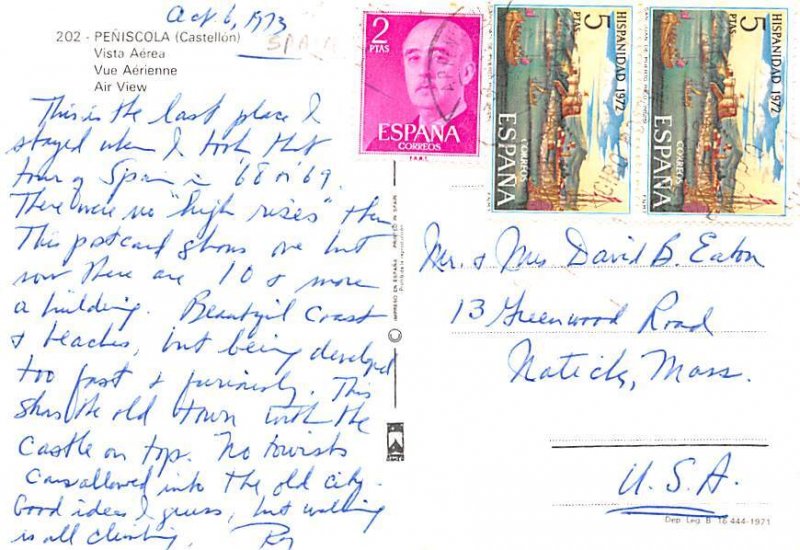 Oct 6, 1973
202 - PEÑISCOLA (Castellón)
SPAIN
Vista Aérea
Vue Aérienne
Air View
This is the last place I
stayed when I took that
tour of Spain in '68 or '69.
There were no "high rises" then
This postcard shows one but
now there are 10 & more
a building. Beautiful Coast
& beaches, but being developed
too fast & furiously. This
shows the old town with the
Castle on top. No tourists
cars allowed into the old city.
Good idea I guess, but walking
is all climbing. Roy
2
PTAS
ESPAÑA
CORREOS
F.N.M.T.
HISPANIDAD 1972
5
PTAS
CORREOS
ESPAÑA
HISPANIDAD 1972
5
PTAS
CORREOS
ESPAÑA
IMPRESO EN ESPAÑA PRINTED IN SPAIN
Prohibida la reproducción
Mr. & Mrs David B. Eaton
13 Greenwood Road
Natick, Mass.
U.S.A.
Dep. Leg. B 16 444-1971